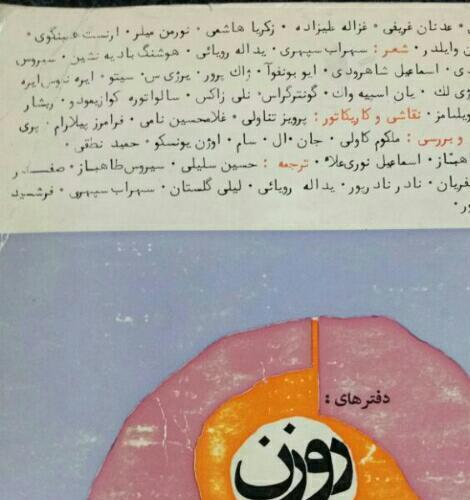 عدنان غریفی • غزاله علیزاده • زکریا هاشمی • نورمن میلر • ارنست همینگوی •
ن وایلدر • شعر : سهراب سپهری • یداله رویائی • هوشنگ بادیه نشین • سیروس
ی • اسماعیل شاهرودی • ایو بونفوآ • ژاک پرور • یرژی س • سیتو •
ژی لک • یان اسپیه واک • گونترگراس • نلی زاکس • سالواتوره کوازیمودو • ریشار
ویلیامز • نقاشی و کاریکاتور : پرویز تناولی • غلامحسین نامی • فرامرز پیلارام • پری
و بررسی : ملکوم کاولی • جان • ال • سام • اوژن یونسکو • حمید نطقی •
اسماعیل نوری علاء • ترجمه : حسین سلیلی • سیروس طاهباز • صفدر
نادر نادرپور • یداله رویائی • لیلی گلستان • سهراب سپهری • فرشید
ور •
دفترهای :
روزن